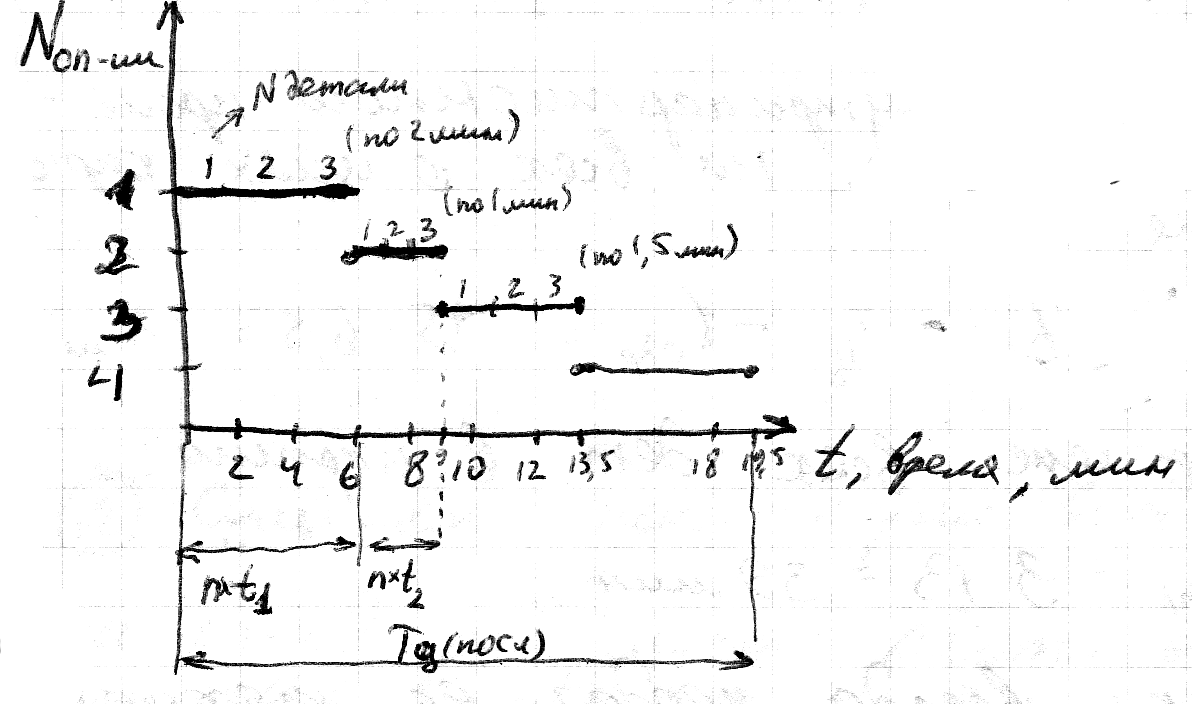 Nоп-ии
N детали
1 2 3 (по 2 мин)
1
1 2 3 (по 1 мин)
2
1 2 3 (по 1,5 мин)
3
4
2 4 6 8 9 10 12 13,5 18 19,5 t, время, мин
n×t1 n×t2
Tц (посл)